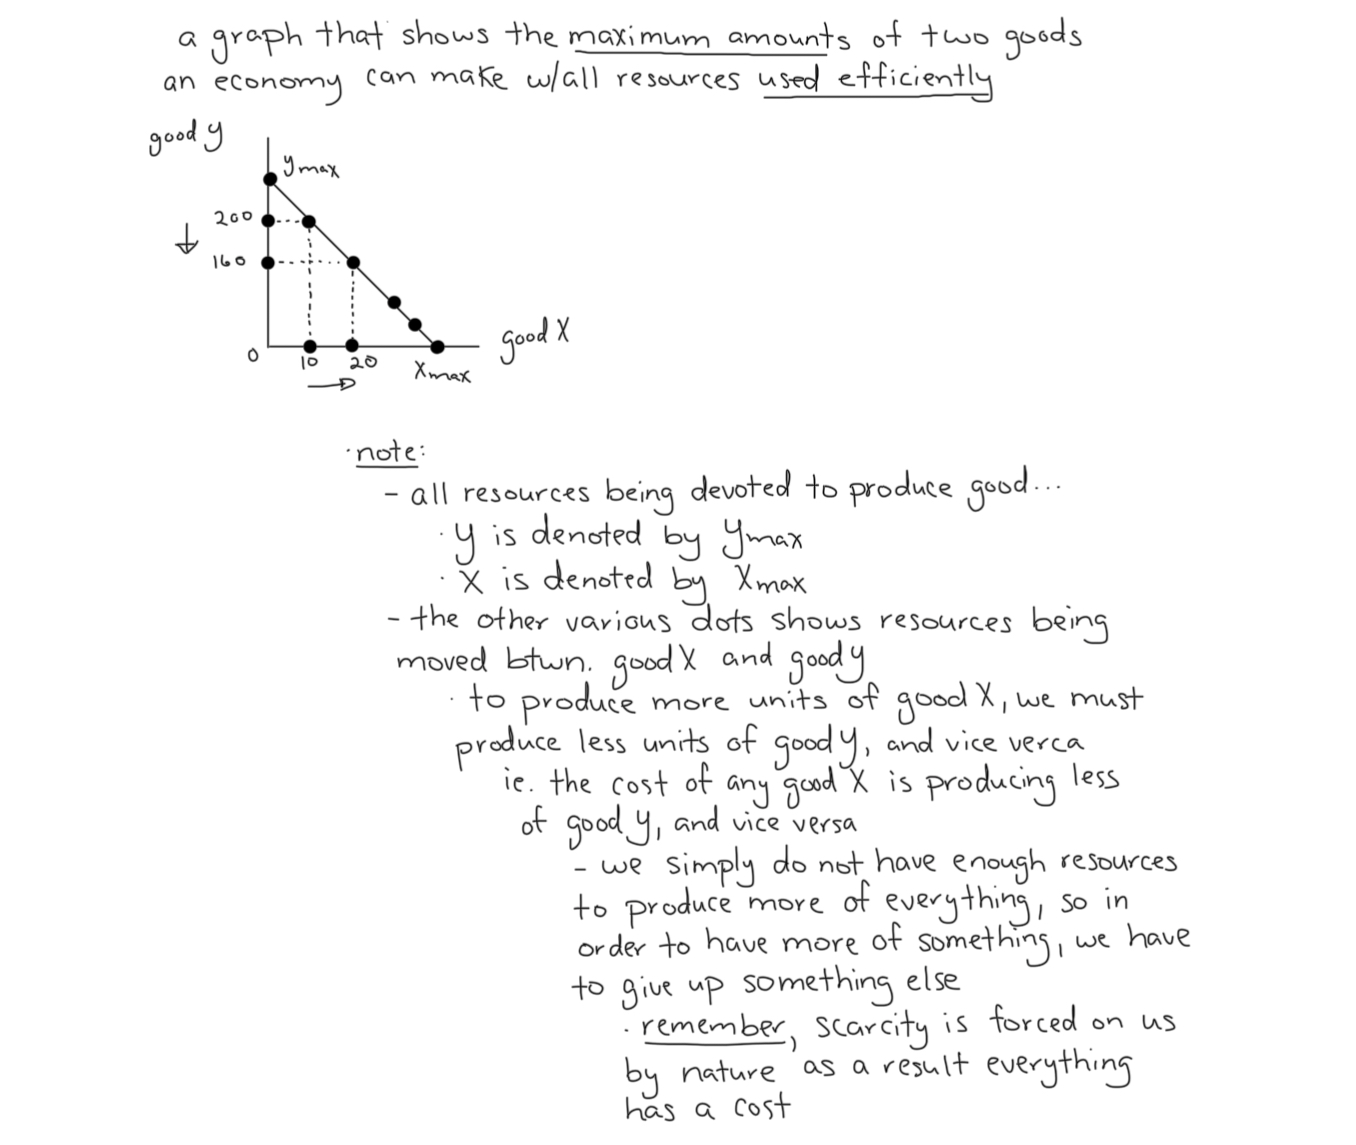 a graph that shows the maximum amounts of two goods
an economy can make w/all resources used efficiently
good y
ymax
200
160
0
10
20
Xmax
good X
·note:
- all resources being devoted to produce good...
· y is denoted by ymax
· X is denoted by Xmax
- the other various dots shows resources being
moved btwn. good X and good y
· to produce more units of good X, we must
produce less units of good y, and vice verca
ie. the cost of any good X is producing less
of good y, and vice versa
- we simply do not have enough resources
to produce more of everything, so in
order to have more of something, we have
to give up something else
· remember, scarcity is forced on us
by nature as a result everything
has a cost